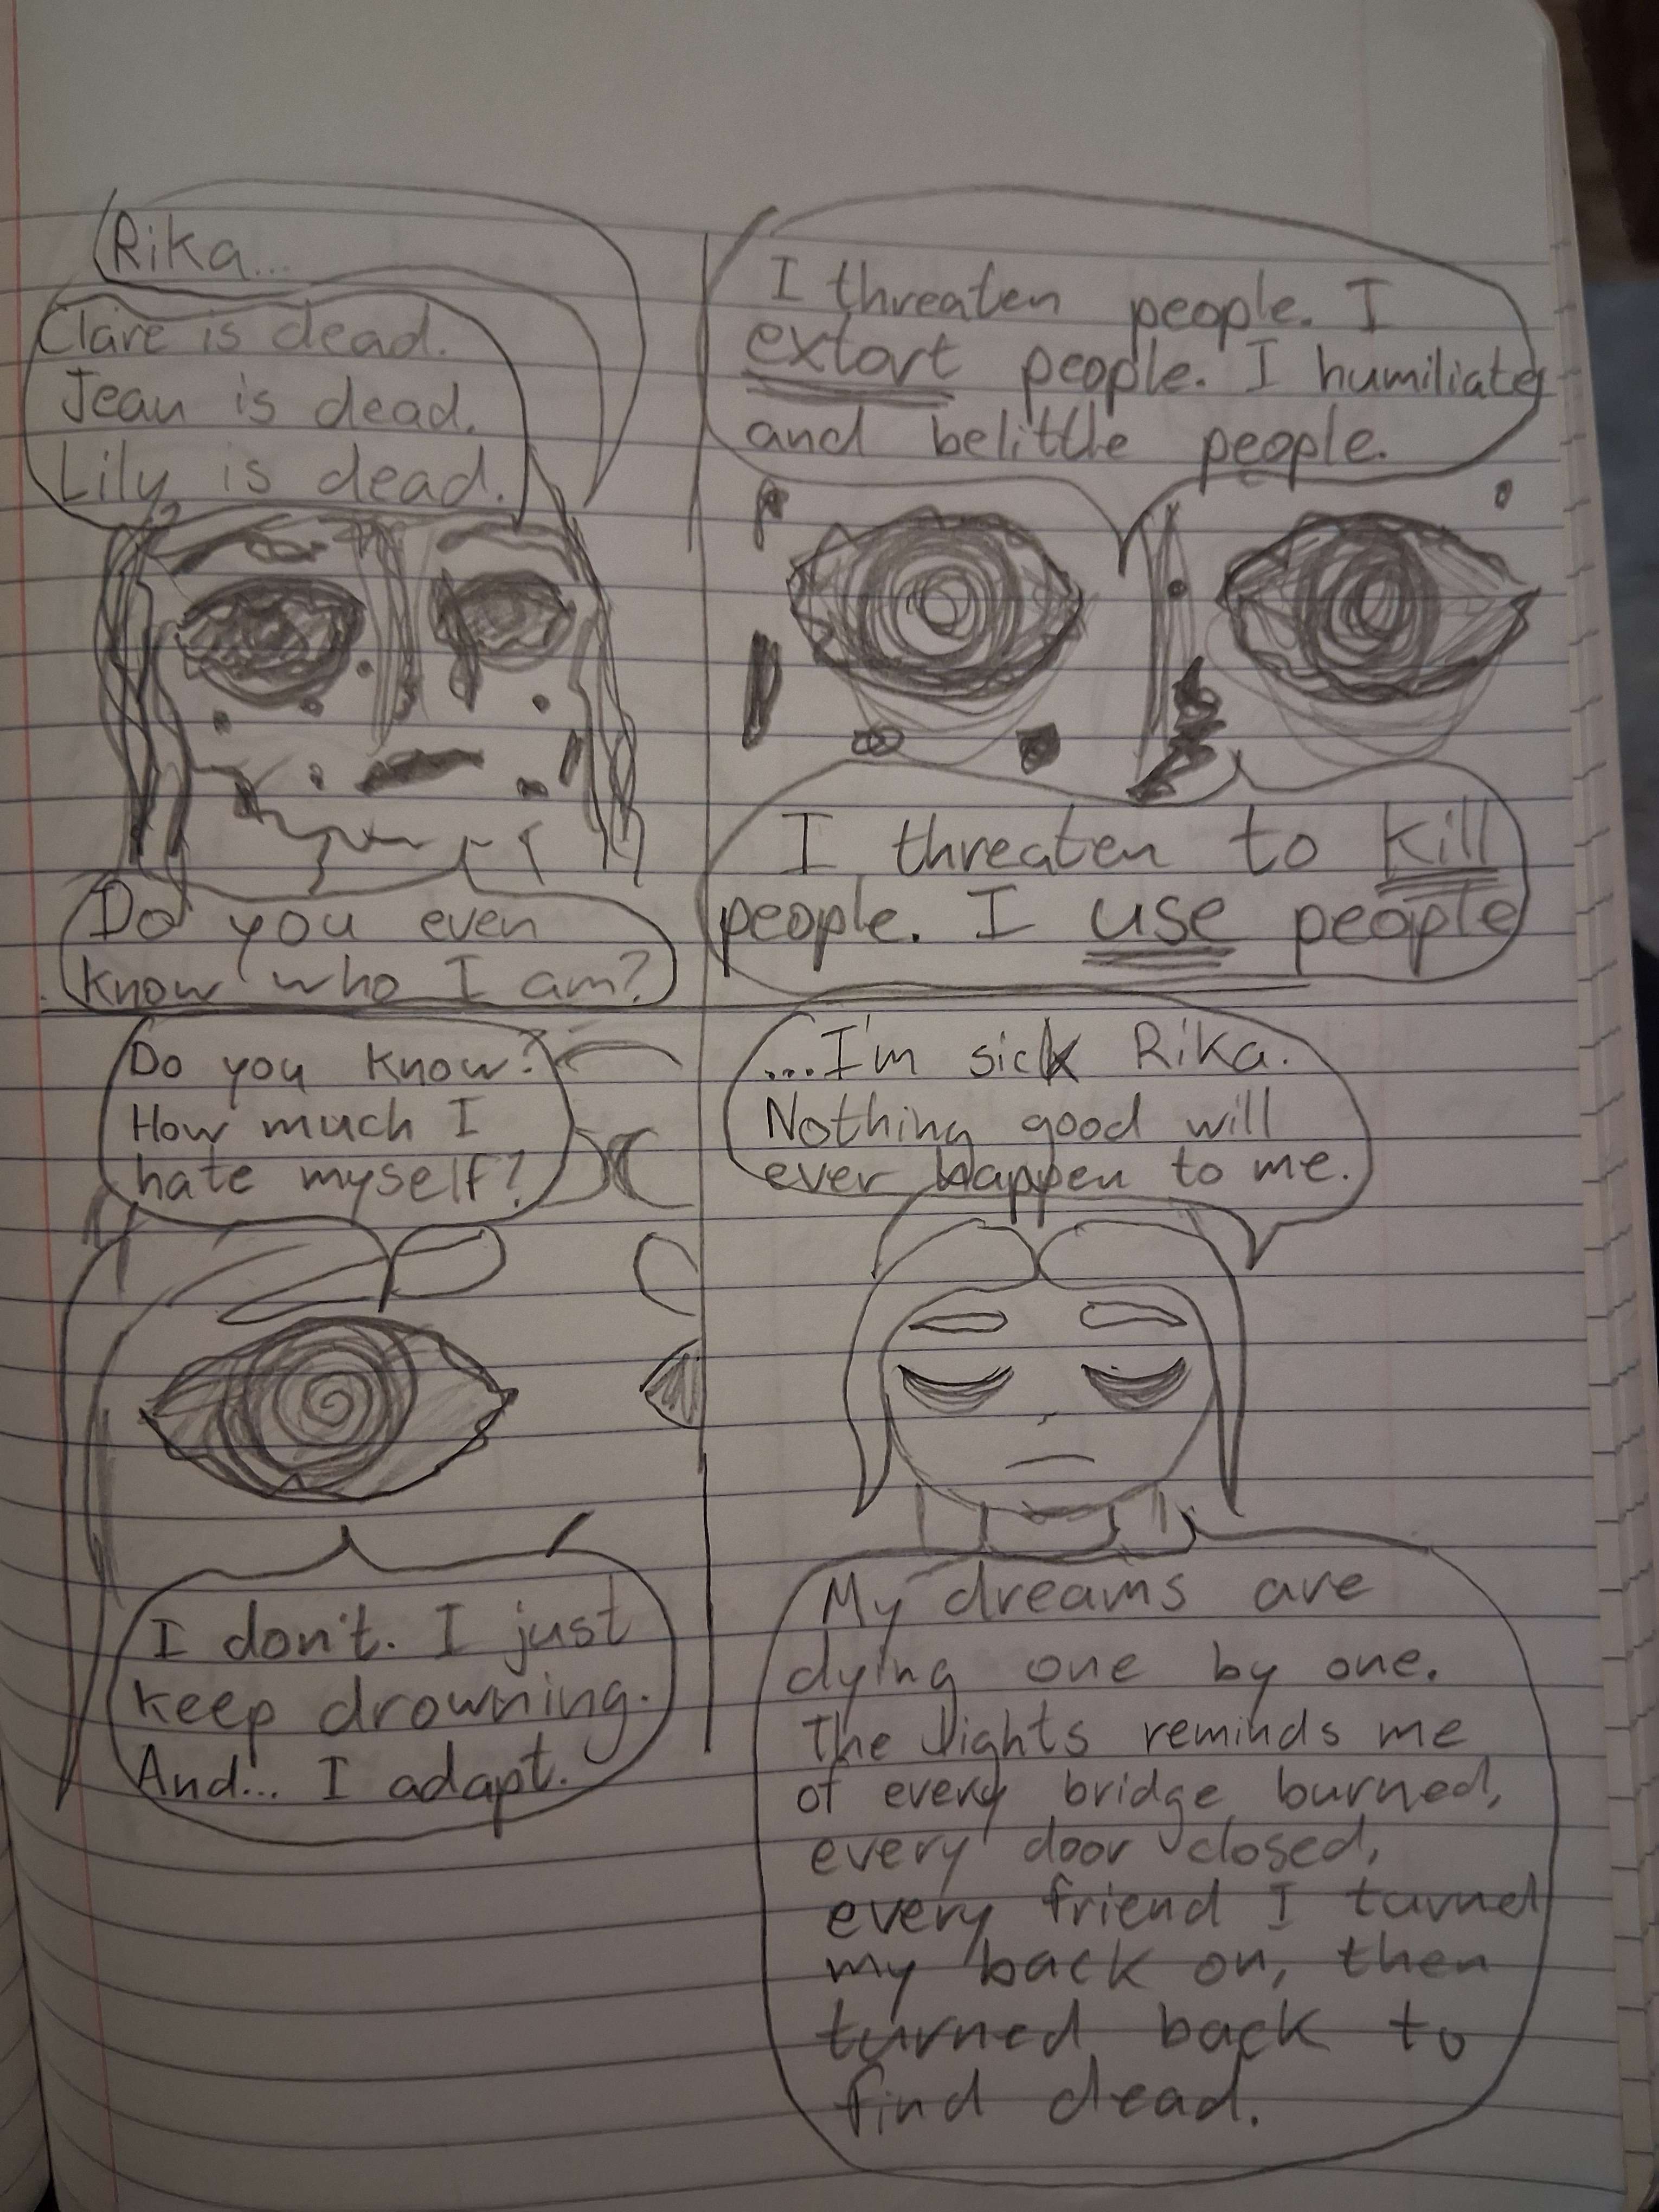 Rika...
Clare is dead.
Jean is dead.
Lily is dead.
Do you even
know who I am?
I threaten people. I
extort people. I humiliate
and belittle people.
I threaten to kill
people. I use people
Do you know?
How much I
hate myself?
I don't. I just
keep drowning.
And... I adapt.
...I'm sick Rika.
Nothing good will
ever happen to me.
My dreams are
dying one by one.
The lights reminds me
of every bridge burned,
every door closed,
every friend I turned
my back on, then
turned back to
find dead.